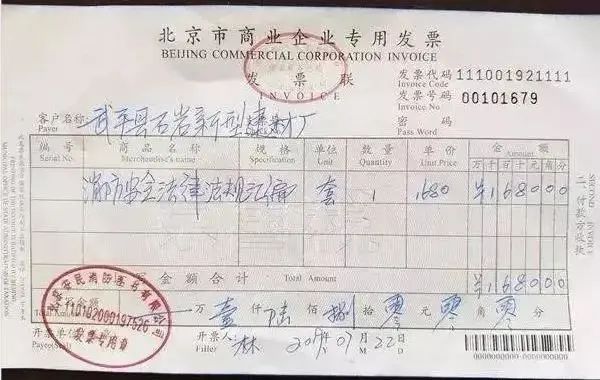 北京市商业企业专用发票
BEIJING COMMERCIAL CORPORATION INVOICE
发票联
INVOICE
发票代码 111001921111
Invoice Code
发票号码 00101679
Invoice No
密码
Pass Word
客户名称 武平县石岩新型建材厂
Payer
编号 商品名称 规格 单位 数量 单价 金额
Serial No. Merchandise's name Specification Unit Quantity Unit Price Amount
万 千 百 十 元 角 分
消防安全法律法规汇编 套 1 1680 ¥168000
金额合计 Total Amount ¥168000
万 壹 仟 陆 佰 捌 拾 零 元 零 角 零 分
11010200019752
发票专用章
开票单 开票人 林 2019 Y 07 M 22 D
Payee(Seal) Filler
二 付款方收执
SECOND INVOICE
0000000000-00000000